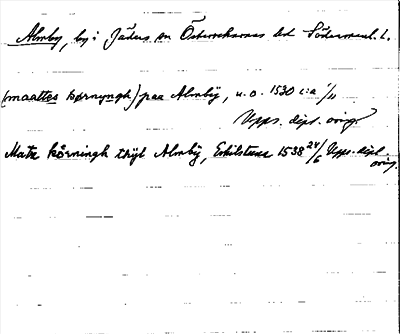 Almby, by i Jäders sn Österrekarnes hd Södermanl. L.
(maattes kørnyngh) paa Almby, u.o. 1530 c:a 1/11
Upps. dipl. orig.
Mats körningh thijt Almby, Eskilstuna 1538 24/6 Upps. dipl.
orig.